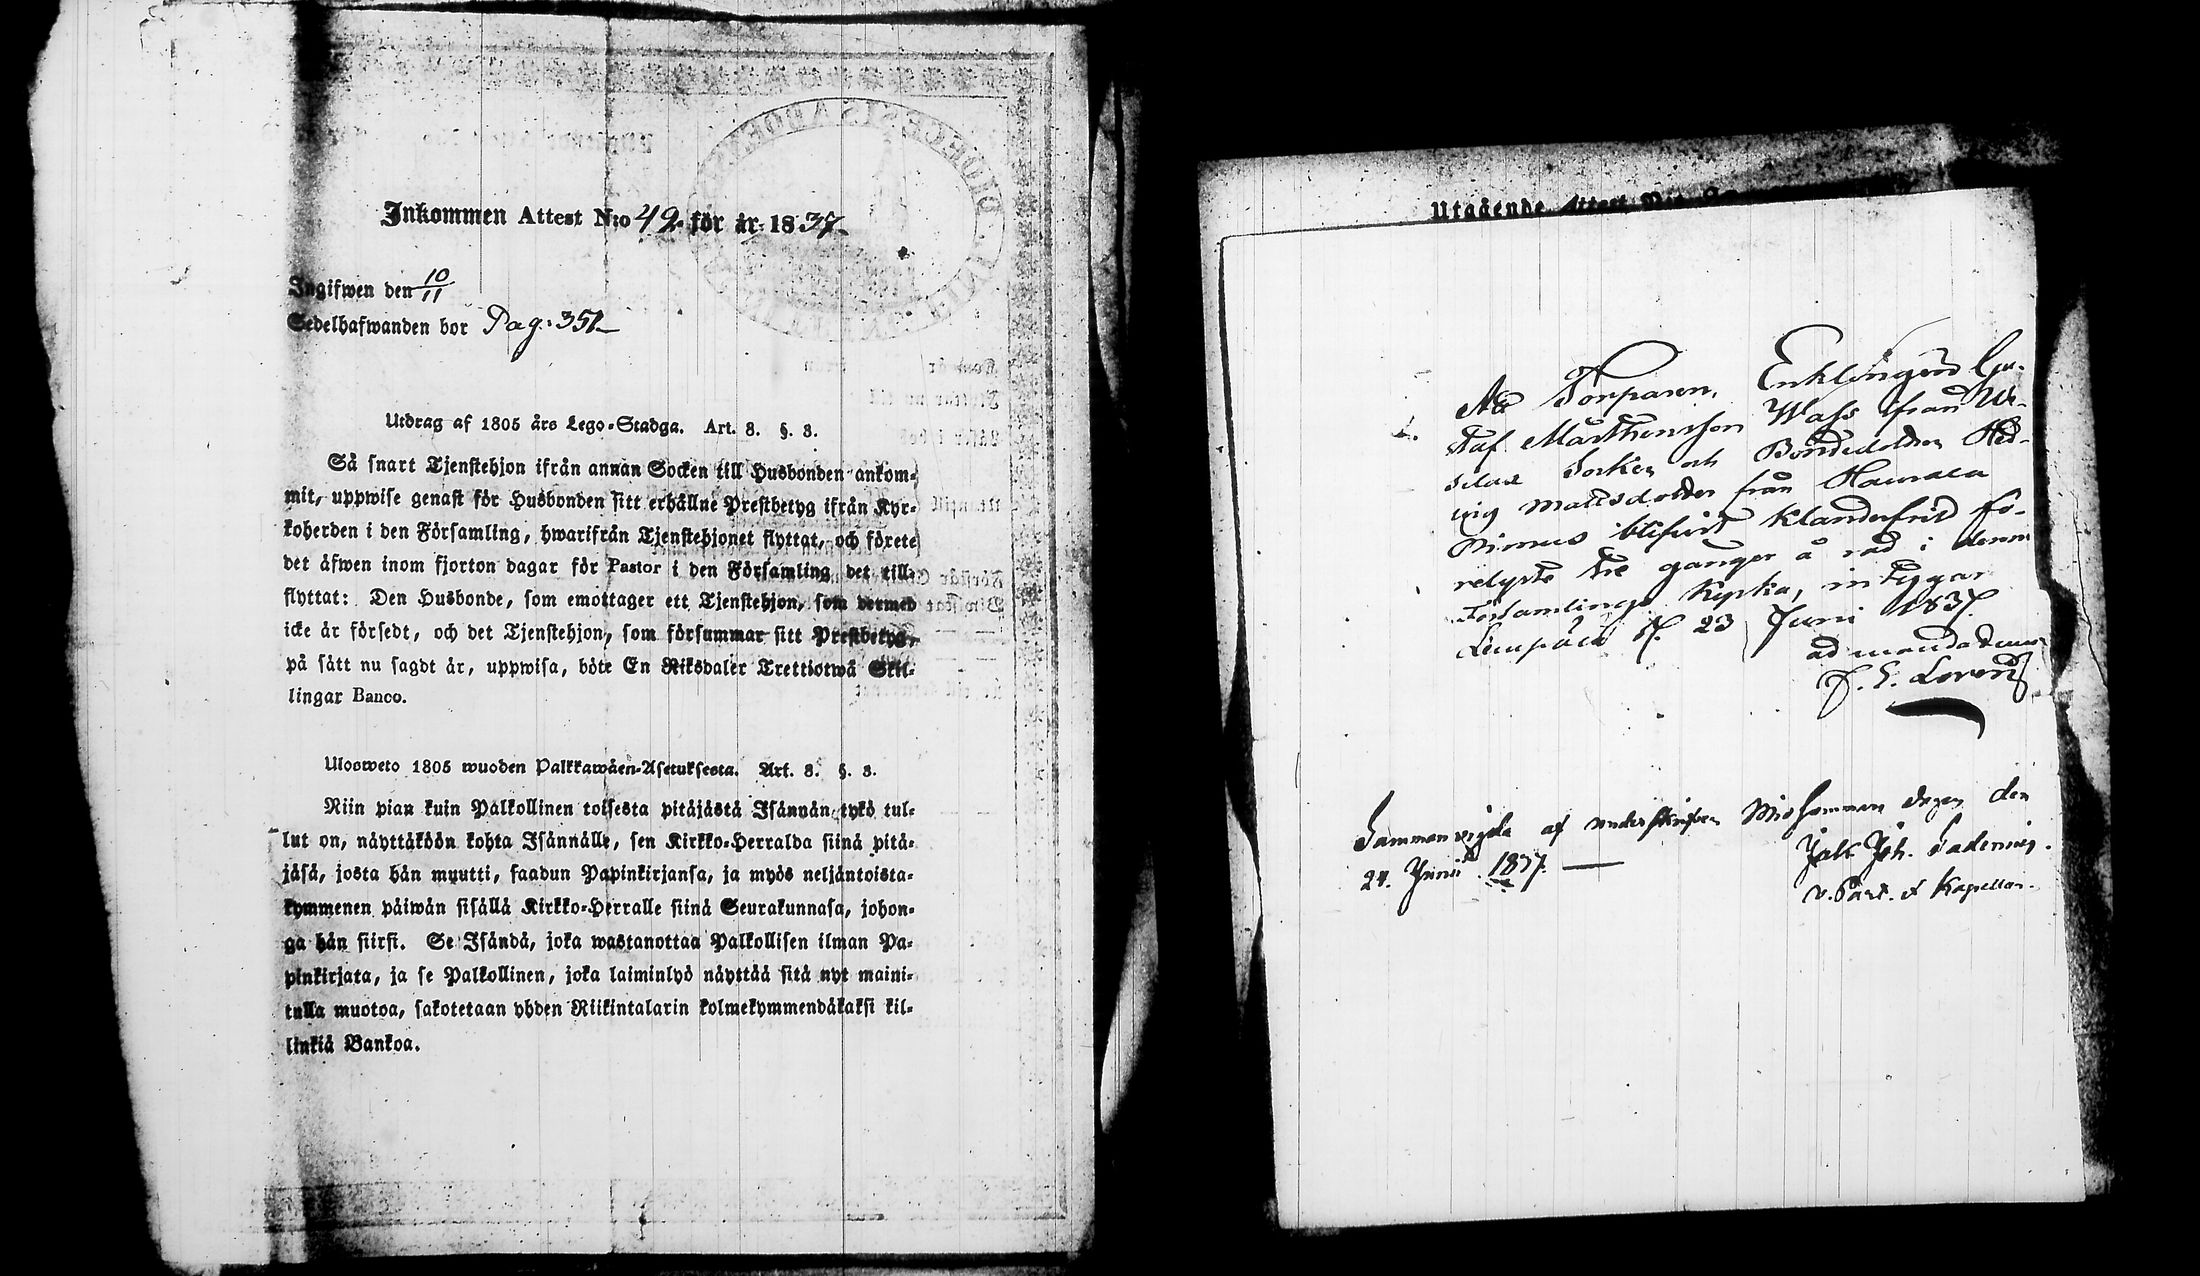 Inkommen Attest N:o 49. för år 1837.
Ingifwen den 10/11
Sedelhafwanden bor Pag. 351
Utdrag af 1805 års Lego-Stadga. Art. 8. §. 3.
Så snart Tjenstehjon ifrån annan Socken till Husbonden ankom-
mit, uppwise genast för Husbonden sitt erhållne Prestbetyg ifrån Kyr-
koherden i den Församling, hwarifrån Tjenstehjonet flyttat, och förete
det äfwen inom fjorton dagar för Pastor i den Församling det till-
flyttat: Den Husbonde, som emottager ett Tjenstehjon, som dermed
icke är försedt, och det Tjenstehjon, som försummar sitt Prestbetyg,
på sätt nu sagdt är, uppwisa, böte En Riksdaler Trettiotwå Skil-
lingar Banco.
Uloosweto 1805 wuoden Palkkawäen-Asetuksesta. Art. 8. §. 3.
Niin pian kuin Palkollinen toisesta pitäjästä Isännän tykö tul-
lut on, näyttäköön kohta Isännälle, sen Kirkko-Herralda siinä pitä-
jäsä, josta hän muutti, saadun Papinkirjansa, ja myös neljäntoista-
kymmenen päiwän sisällä Kirkko-Herralle siinä Seurakunnasa, johon-
ga hän siirsi. Se Isändä, joka wastanottaa Palkollisen ilman Pa-
pinkirjata, ja se Palkollinen, joka laiminlyö näyttää sitä nyt maini-
tulla muotoa, sakotetaan yhden Riikintalarin kolmekymmendäkaksi kil-
linkiä Bankoa.
Utgående Attest
At Torparen, Enklingen Gu-
staf Marthensson Wass från We-
silax Socken och Bondedottren Hed-
wig Mattsdotter från Haurala
Primus blifwit klanderfrit fö-
relyste tre gånger å rad i denna
Församlings Kyrka, intygar
Lempälä d. 23 Juni 1837.
ad mandatum
F. E. Lovend
Sammanvigda af underskrifven Midsommars dagen den
24. Junii 1837.
Jak. Joh.
v. Past. et Kapellan.